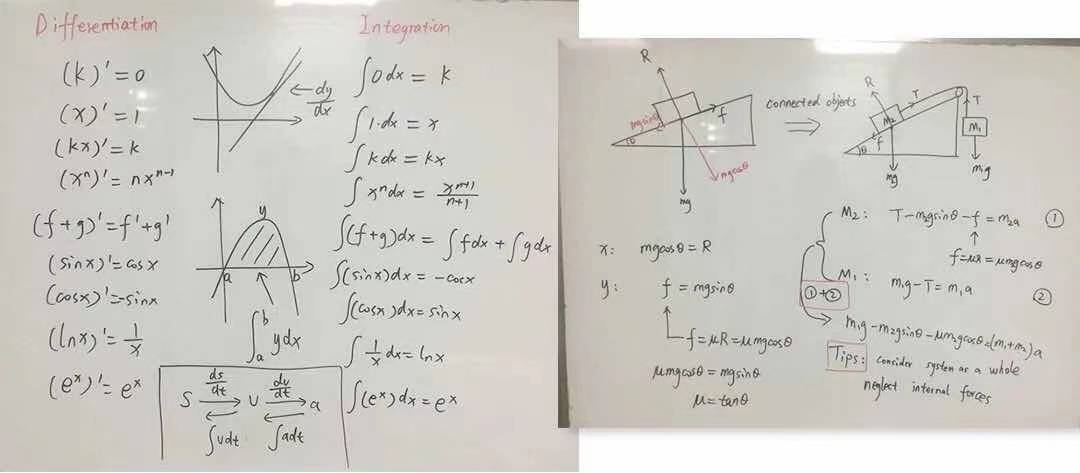 Differentiation
(k)' = 0
(x)' = 1
(kx)' = k
(xⁿ)' = nxⁿ⁻¹
(f+g)' = f'+g'
(sinx)' = cosx
(cosx)' = -sinx
(lnx)' = 1/x
(eˣ)' = eˣ
← dy/dx
y
a
b
∫ₐᵇ ydx
S ds/dt → v dv/dt → a
← ∫vdt ← ∫adt
Integration
∫0dx = k
∫1·dx = x
∫kdx = kx
∫xⁿdx = xⁿ⁺¹/n+1
∫(f+g)dx = ∫fdx + ∫gdx
∫(sinx)dx = -cosx
∫(cosx)dx = sinx
∫1/x dx = lnx
∫(eˣ)dx = eˣ
R
f
mgsinθ
θ
mgcosθ
mg
connected objects
⇒
R
T
T
M₂
M₁
f
θ
mg
m₁g
x: mgcosθ = R
y: f = mgsinθ
f = μR = μmgcosθ
μmgcosθ = mgsinθ
μ = tanθ
M₂: T - m₂gsinθ - f = m₂a ①
f = μR = μm₂gcosθ
M₁: m₁g - T = m₁a ②
①+②
m₁g - m₂gsinθ - μm₂gcosθ = (m₁+m₂)a
Tips: consider system as a whole
neglect internal forces